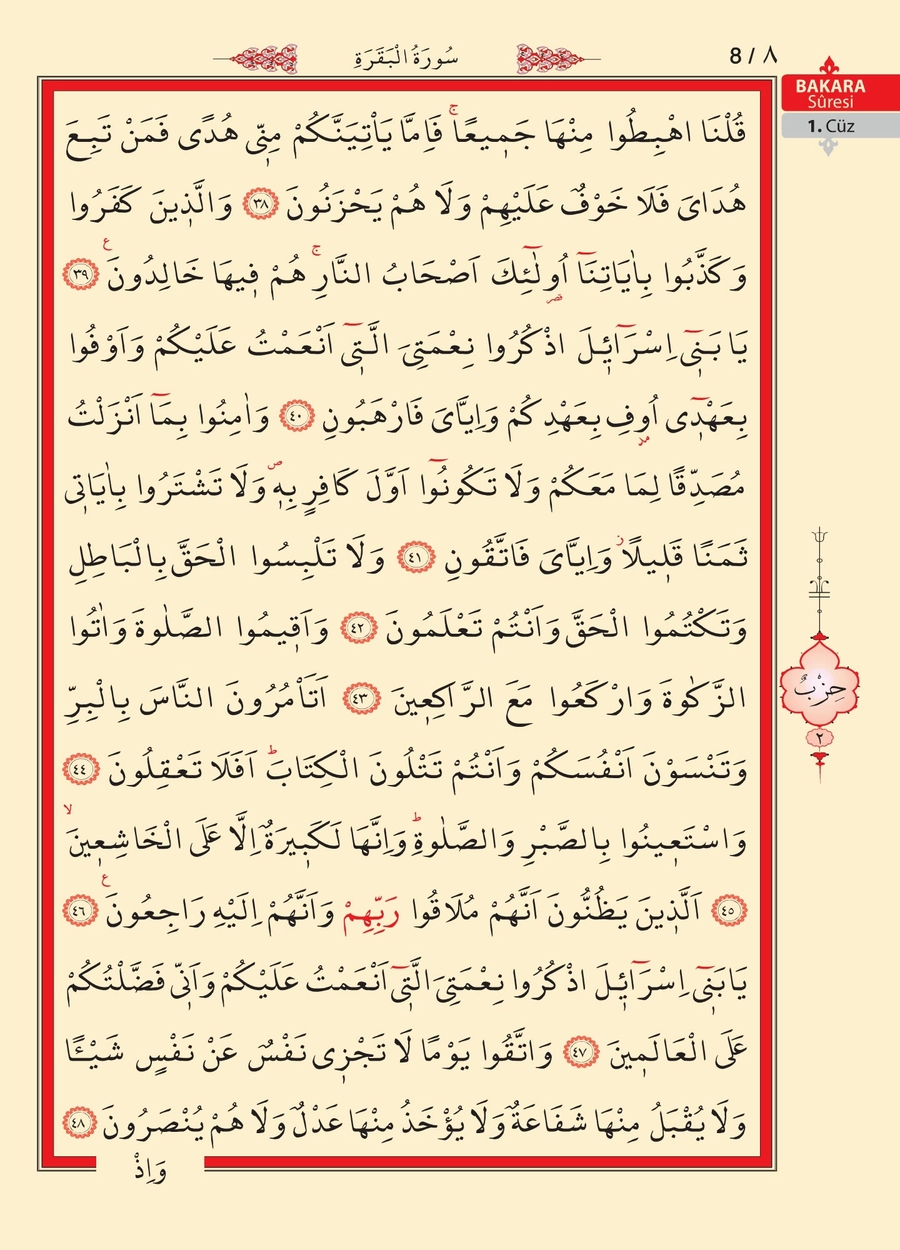 سُورَةُ الْبَقَرَةِ
8 / ٨
BAKARA
Sûresi
1. Cüz
قُلْنَا اهْبِطُوا مِنْهَا جَمٖيعًاۚ فَاِمَّا يَاْتِيَنَّكُمْ مِنّٖى هُدًى فَمَنْ تَبِعَ
هُدَاىَ فَلَا خَوْفٌ عَلَيْهِمْ وَلَا هُمْ يَحْزَنُونَ ﴿٣٨﴾ وَالَّذٖينَ كَفَرُوا
وَكَذَّبُوا بِاٰيَاتِنَٓا اُولٰٓئِكَ اَصْحَابُ النَّارِۚ هُمْ فٖيهَا خَالِدُونَ ﴿٣٩﴾ ع
يَا بَنٖٓى اِسْرَٓائٖلَ اذْكُرُوا نِعْمَتِىَ الَّتٖٓى اَنْعَمْتُ عَلَيْكُمْ وَاَوْفُوا
بِعَهْدٖٓى اُوفِ بِعَهْدِكُمْ وَاِيَّاىَ فَارْهَبُونِ ﴿٤٠﴾ وَاٰمِنُوا بِمَٓا اَنْزَلْتُ
مُصَدِّقًا لِمَا مَعَكُمْ وَلَا تَكُونُٓوا اَوَّلَ كَافِرٍ بِهٖࣕ وَلَا تَشْتَرُوا بِاٰيَاتٖى
ثَمَنًا قَلٖيلًاؗ وَاِيَّاىَ فَاتَّقُونِ ﴿٤١﴾ وَلَا تَلْبِسُوا الْحَقَّ بِالْبَاطِلِ
وَتَكْتُمُوا الْحَقَّ وَاَنْتُمْ تَعْلَمُونَ ﴿٤٢﴾ وَاَقٖيمُوا الصَّلٰوةَ وَاٰتُوا
الزَّكٰوةَ وَارْكَعُوا مَعَ الرَّاكِعٖينَ ﴿٤٣﴾ اَتَاْمُرُونَ النَّاسَ بِالْبِرِّ
وَتَنْسَوْنَ اَنْفُسَكُمْ وَاَنْتُمْ تَتْلُونَ الْكِتَابَؕ اَفَلَا تَعْقِلُونَ ﴿٤٤﴾
وَاسْتَعٖينُوا بِالصَّبْرِ وَالصَّلٰوةِؕ وَاِنَّهَا لَكَبٖيرَةٌ اِلَّا عَلَى الْخَاشِعٖينَۙ
﴿٤٥﴾ اَلَّذٖينَ يَظُنُّونَ اَنَّهُمْ مُلَاقُوا رَبِّهِمْ وَاَنَّهُمْ اِلَيْهِ رَاجِعُونَ ﴿٤٦﴾ ع
يَا بَنٖٓى اِسْرَٓائٖلَ اذْكُرُوا نِعْمَتِىَ الَّتٖٓى اَنْعَمْتُ عَلَيْكُمْ وَاَنّٖى فَضَّلْتُكُمْ
عَلَى الْعَالَمٖينَ ﴿٤٧﴾ وَاتَّقُوا يَوْمًا لَا تَجْزٖى نَفْسٌ عَنْ نَفْسٍ شَيْـًٔا
وَلَا يُقْبَلُ مِنْهَا شَفَاعَةٌ وَلَا يُؤْخَذُ مِنْهَا عَدْلٌ وَلَا هُمْ يُنْصَرُونَ ﴿٤٨﴾
وَاِذْ
حِزْبٌ
٢